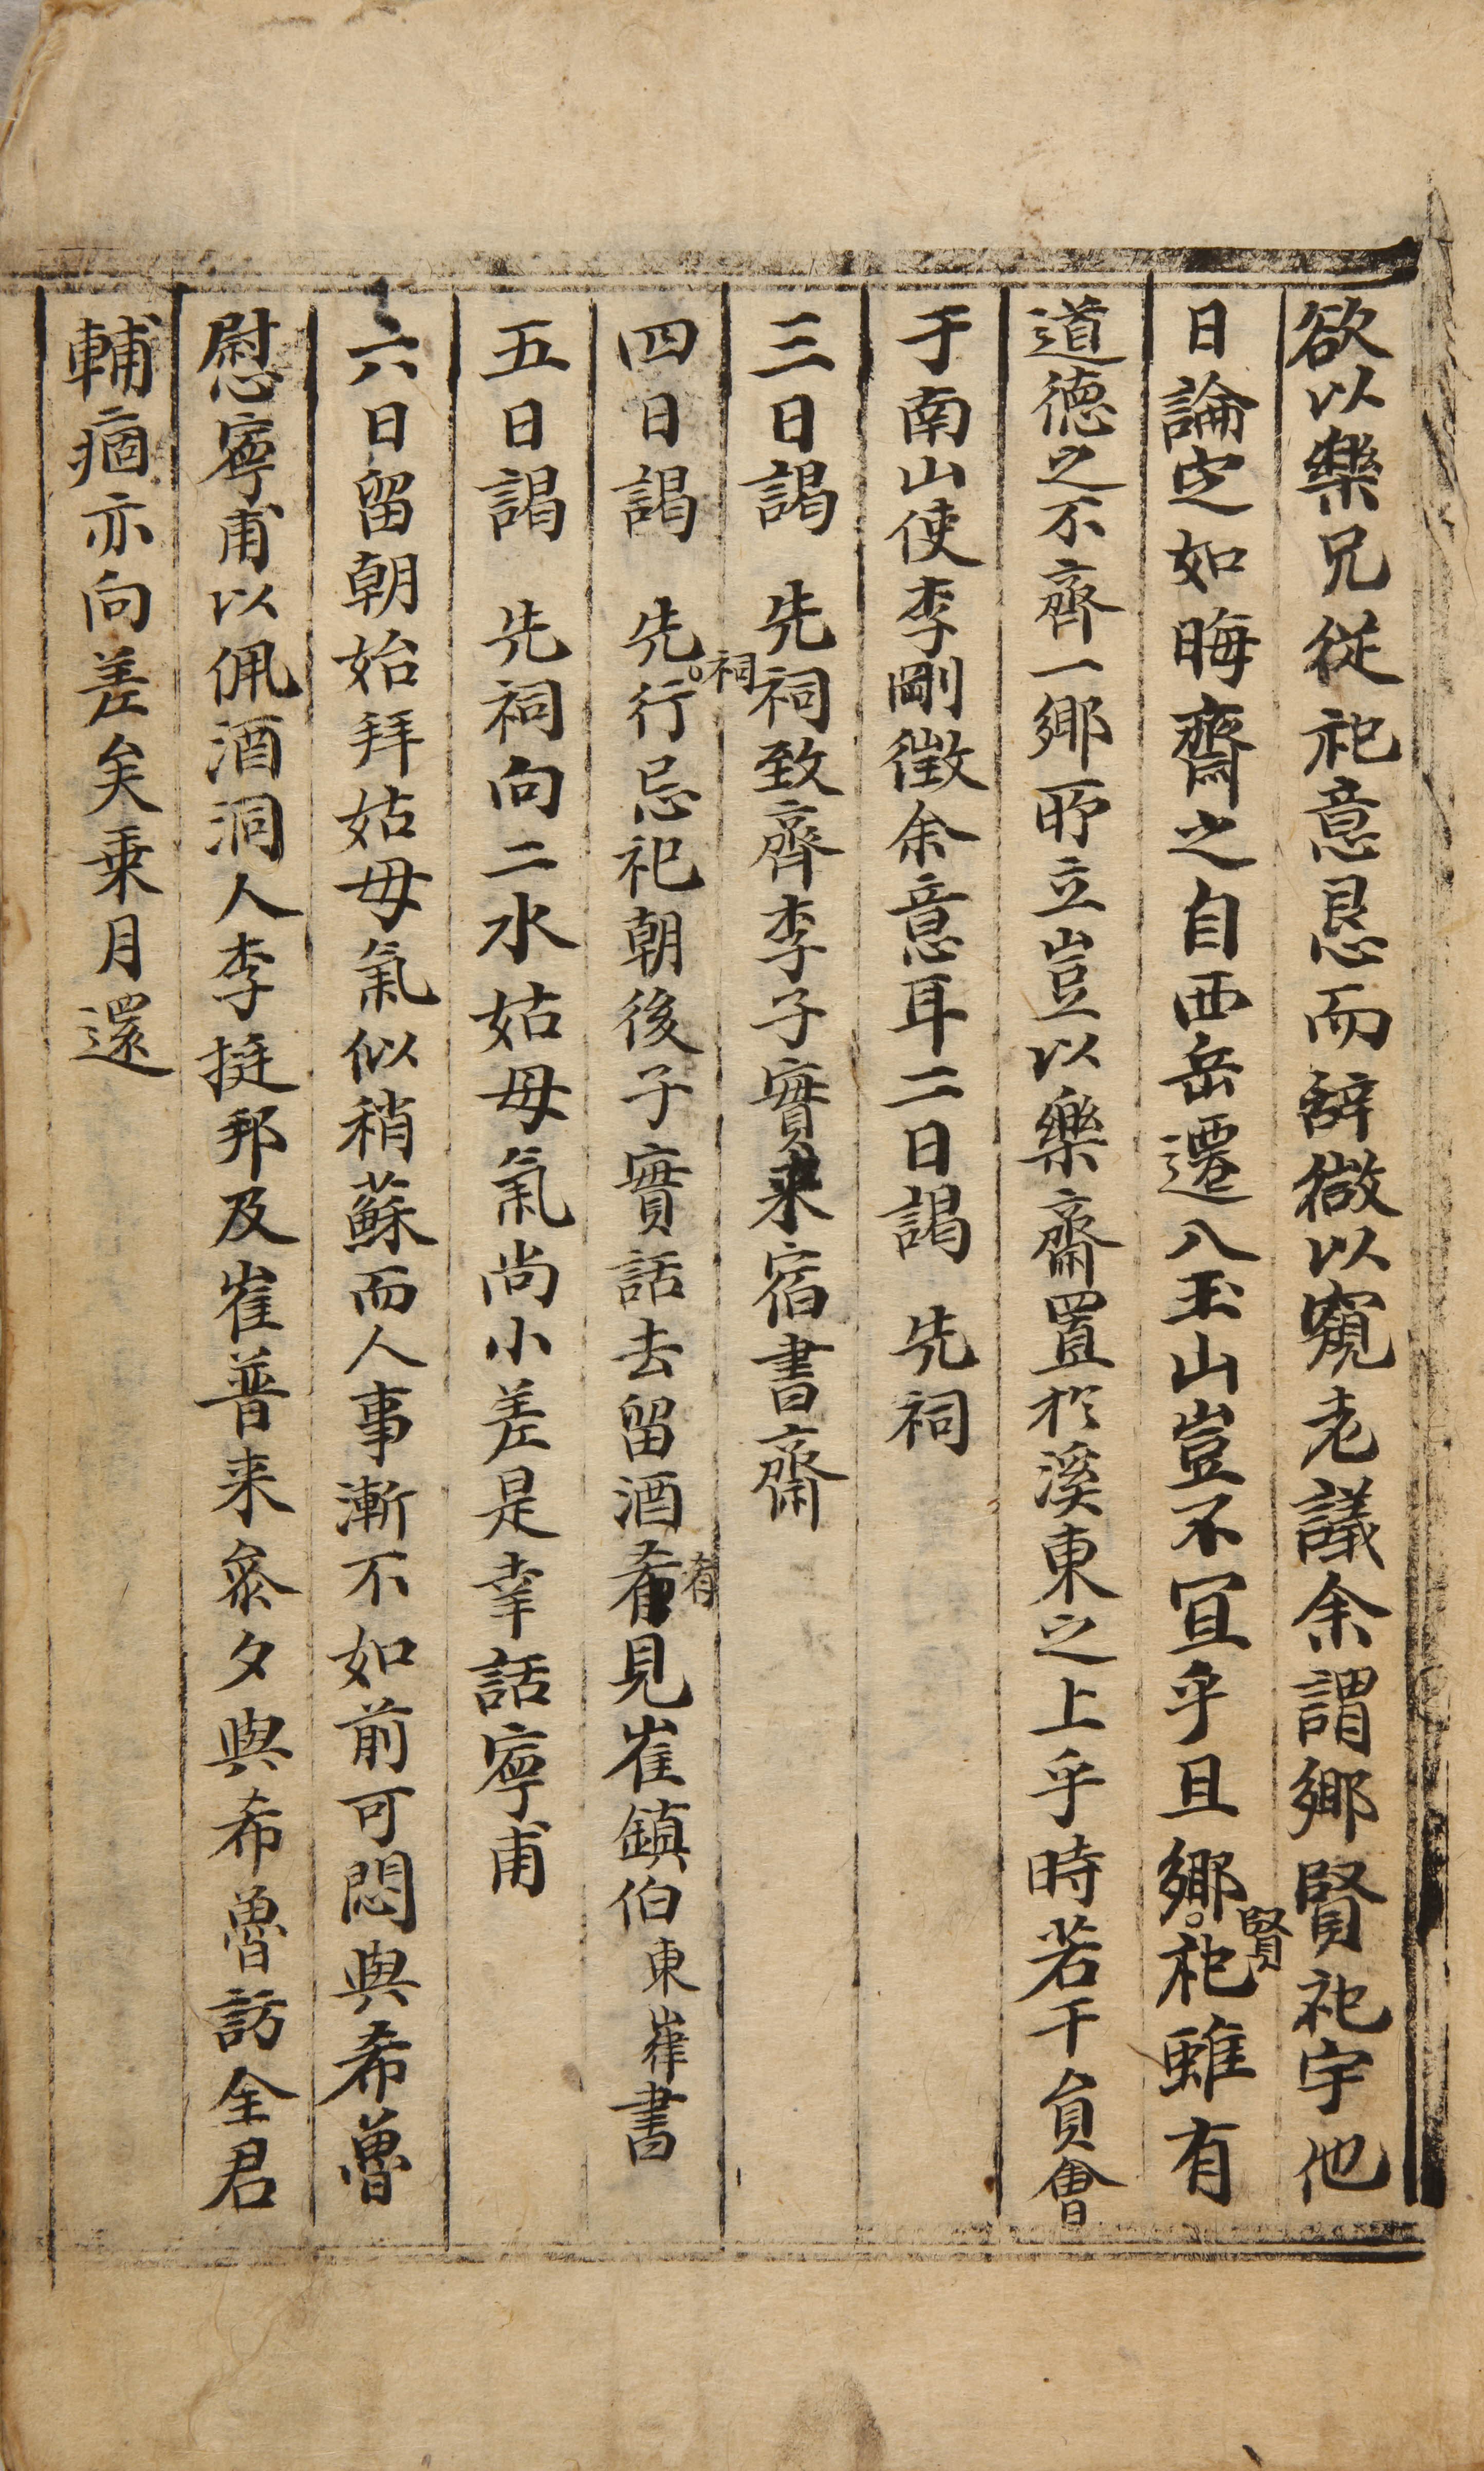 欲以樂兄從祀意恳而辞微以窺老議余謂鄉賢祀宇他
日論定如晦齋之自西岳遷入玉山豈不宜乎且鄉賢祀雖有
道德之不齊一鄉所立豈以樂齋置於溪東之上乎時若干員會
于南山使李剛徵余意耳二日謁 先祠
三日謁 先祠致齊李子實来宿書齋
四日謁 先祠行忌祀朝後子實話去留酒肴有見崔鎮伯東嵂書
五日謁 先祠向二水姑母氣尚小差是幸話寧甫
六日留朝始拜姑母氣似稍蘇而人事漸不如前可悶與希魯
慰寧甫以佩酒洞人李挺邦及崔普来叅夕與希魯訪全君
輔痼亦向差矣乗月還